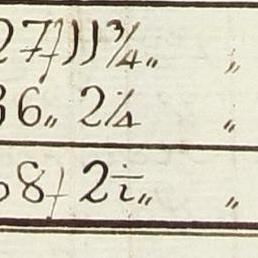 27/11¾ „ „
36„ 2¼ „
68/ 2 „ „